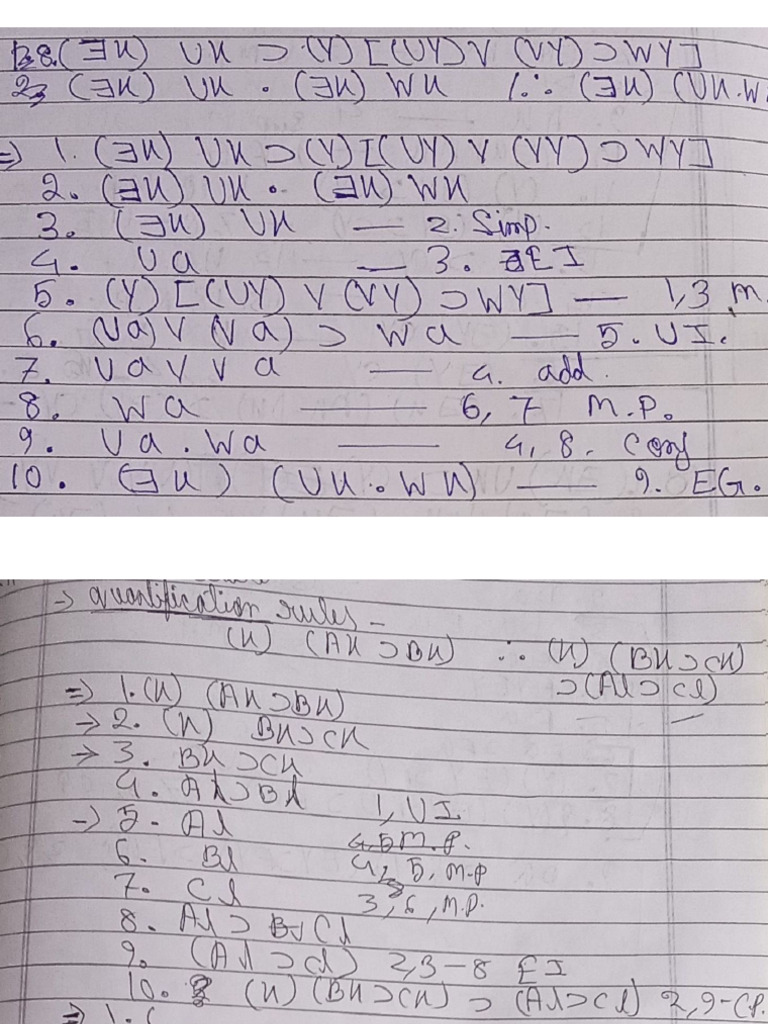 138. (∃x) Ux ⊃ (Y) [(UY) V (VY) ⊃ WY]
2. (∃x) Ux . (∃x) Wx /∴ (∃x) (Ux . W
⇒ 1. (∃x) Ux ⊃ (Y) [(UY) V (VY) ⊃ WY]
2. (∃x) Ux . (∃x) Wx
3. (∃x) Ux — 2. Simp.
4. Ua — 3. EI
5. (Y) [(UY) V (VY) ⊃ WY] — 1,3 M.
6. (Ua) V (Va) ⊃ Wa — 5. UI.
7. Ua V Va — 4. add.
8. Wa — 6, 7 M.P.
9. Ua . Wa — 4, 8. Conj
10. (∃x) (Ux . Wx) — 9. EG.
→ quantification rules –
(x) (Ax ⊃ Bx) ∴ (x) (Bx ⊃ Cx)
⊃ (Al ⊃ Cl)
⇒ 1. (x) (Ax ⊃ Bx)
→ 2. (x) Bx ⊃ Cx
→ 3. Bx ⊃ Cx
4. Al ⊃ Bl 1, UI.
→ 5. Al 4,5 M.P.
6. Bl 4, 5, M.P
7. Cl 3, 6, M.P.
8. Al ⊃ Cl
9. (Al ⊃ Cl) 2,3–8 EI
10. (x) (Bx ⊃ Cx) ⊃ (Al ⊃ Cl) 2,9–CP.
⇒ 1. (